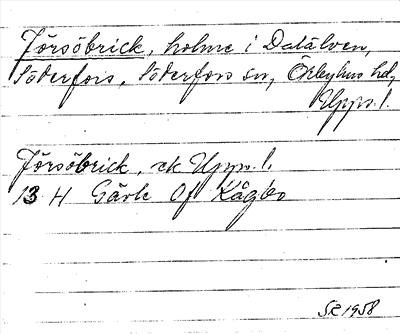 Jörsöbrick, holme i Dalälven,
Söderfors, Söderfors sn, Örbyhus hd,
Upps. l.
Jörsöbrick, ek Upps. l.
13 H Gävle Of Kågbo
SE 1958